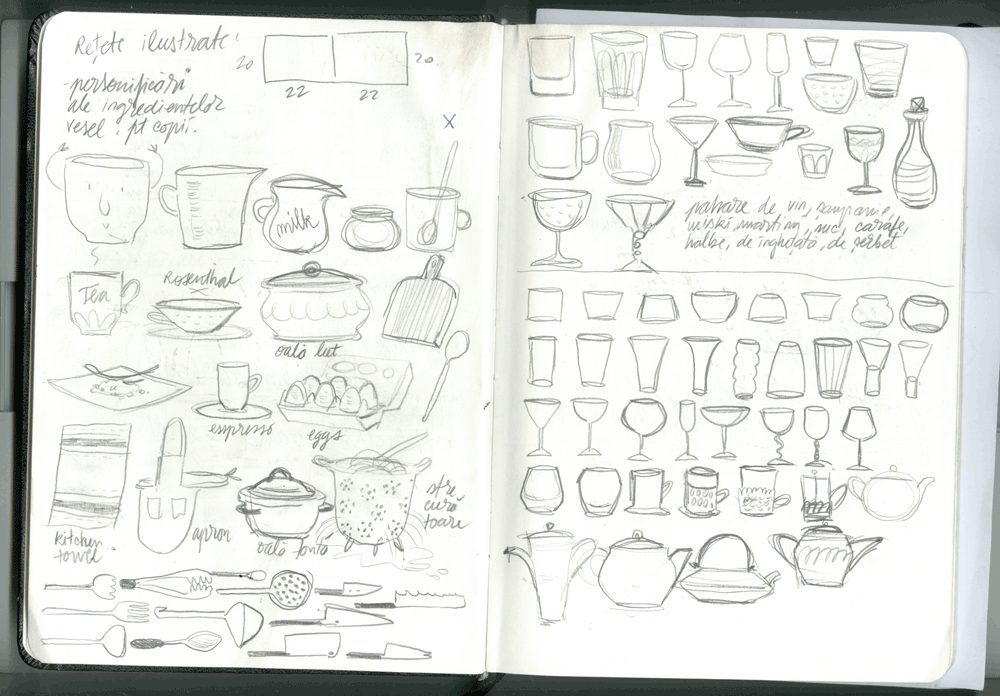 Rețete ilustrate:
20
20
22
22
-personificări
ale ingredientelor
vesel: pt copii.
x
milk
Tea
Rosenthal
x
oală lut
espresso
eggs
kitchen
towel
apron
oală fontă
stre
cură
toare
pahare de vin, șampanie,
wiski, martini, suc, carafe,
halbe, de înghețată, de șerbet